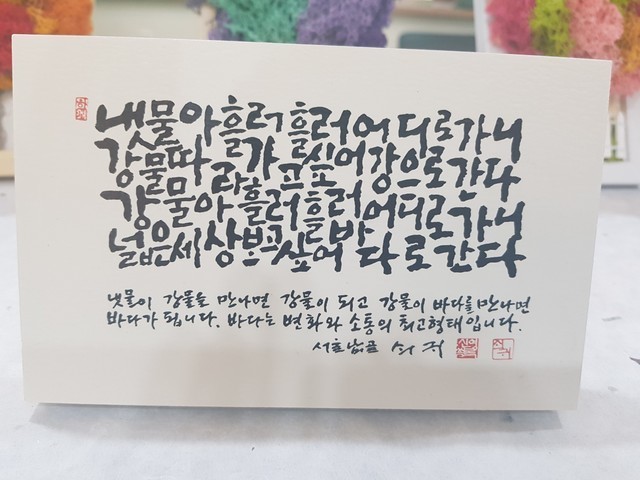 냇물아 흘러 흘러 어디로 가니
강물 따라 가고 싶어 강으로 간다
강물아 흘러 흘러 어디로 가니
넓은 세상 보고 싶어 바다로 간다
냇물이 강물을 만나면 강물이 되고 강물이 바다를 만나면
바다가 됩니다. 바다는 변화와 소통의 최고형태입니다.